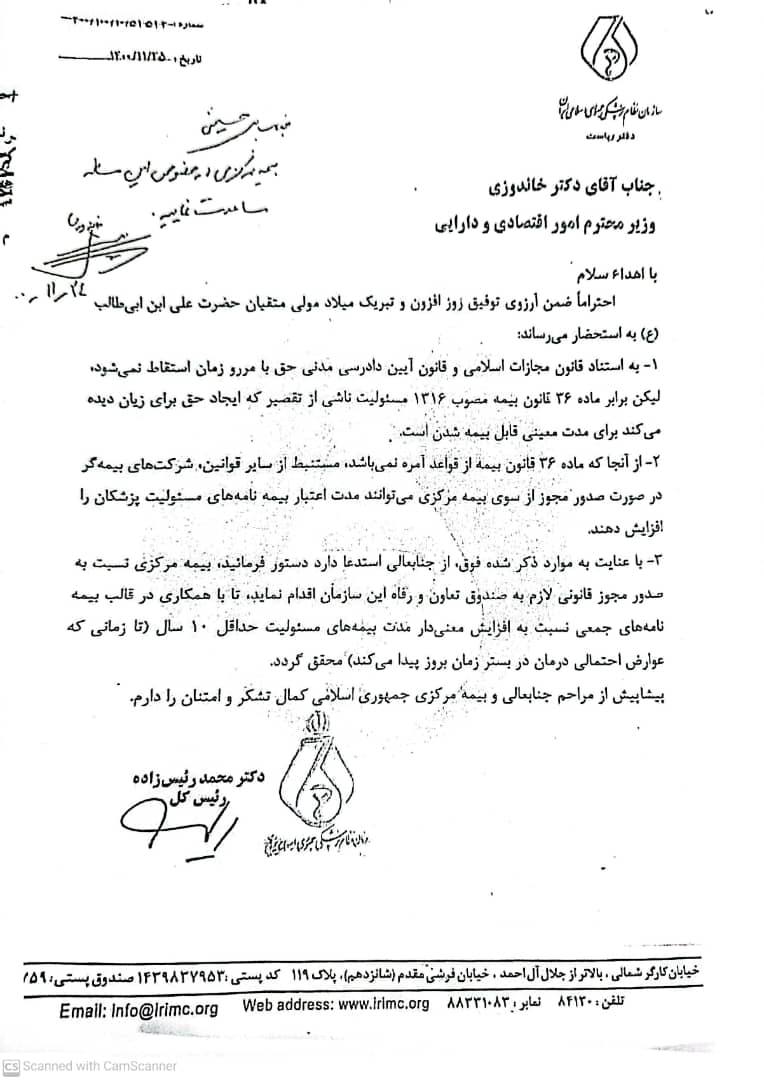 تاریخ: ۱۴۰۰/۱۱/۲۵
سازمان نظام پزشکی جمهوری اسلامی ایران
دفتر ریاست
بیمه مرکزی در خصوص این مساله
مساعدت نمایید.
جناب آقای دکتر خاندوزی
وزیر محترم امور اقتصادی و دارایی
با اهداء سلام
احتراماً ضمن آرزوی توفیق روز افزون و تبریک میلاد مولی متقیان حضرت علی ابن ابی‌طالب
(ع) به استحضار می‌رساند:
۱- به استناد قانون مجازات اسلامی و قانون آیین دادرسی مدنی حق با مررو زمان استقاط نمی‌شود،
لیکن برابر ماده ۳۶ قانون بیمه مصوب ۱۳۱۶ مسئولیت ناشی از تقصیر که ایجاد حق برای زیان دیده
می‌کند برای مدت معینی قابل بیمه شدن است.
۲- از آنجا که ماده ۳۶ قانون بیمه از قواعد آمره نمی‌باشد، مستنبط از سایر قوانین، شرکت‌های بیمه‌گر
در صورت صدور مجوز از سوی بیمه مرکزی می‌توانند مدت اعتبار بیمه نامه‌های مسئولیت پزشکان را
افزایش دهند.
۳- با عنایت به موارد ذکر شده فوق، از جنابعالی استدعا دارد دستور فرمائید، بیمه مرکزی نسبت به
صدور مجوز قانونی لازم به صندوق تعاون و رفاه این سازمان اقدام نماید، تا با همکاری در قالب بیمه
نامه‌های جمعی نسبت به افزایش معنی‌دار مدت بیمه‌های مسئولیت حداقل ۱۰ سال (تا زمانی که
عوارض احتمالی درمان در بستر زمان بروز پیدا می‌کند) محقق گردد.
پیشاپیش از مراحم جنابعالی و بیمه مرکزی جمهوری اسلامی کمال تشکر و امتنان را دارم.
دکتر محمد رئیس‌زاده
رئیس کل
خیابان کارگر شمالی، بالاتر از جلال آل احمد، خیابان فرشی مقدم (شانزدهم)، پلاک ۱۱۹ کد پستی: ۱۴۳۹۸۳۷۹۵۳ صندوق پستی: ۷۵۹/
تلفن: ۸۴۱۳۰ نمابر: ۸۸۳۳۱۰۸۳ Web address: www.irimc.org Email: Info@irimc.org
CS Scanned with CamScanner